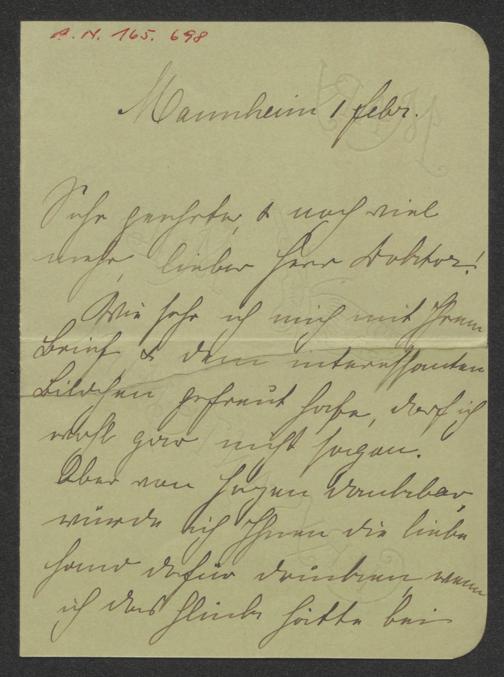 A. N. 165. 698
Mannheim 1 Febr.
Sehr geehrter, & noch viel
mehr, lieber Herr Doktor!
Wie sehr ich mich mit Ihrem
Brief & dem interessanten
Bildchen gefreut habe, darf ich
wohl gar nicht sagen.
Aber von Herzen dankbar
würde ich Ihnen die liebe
Hand dafür drücken, wenn
ich das Glück hätte bei